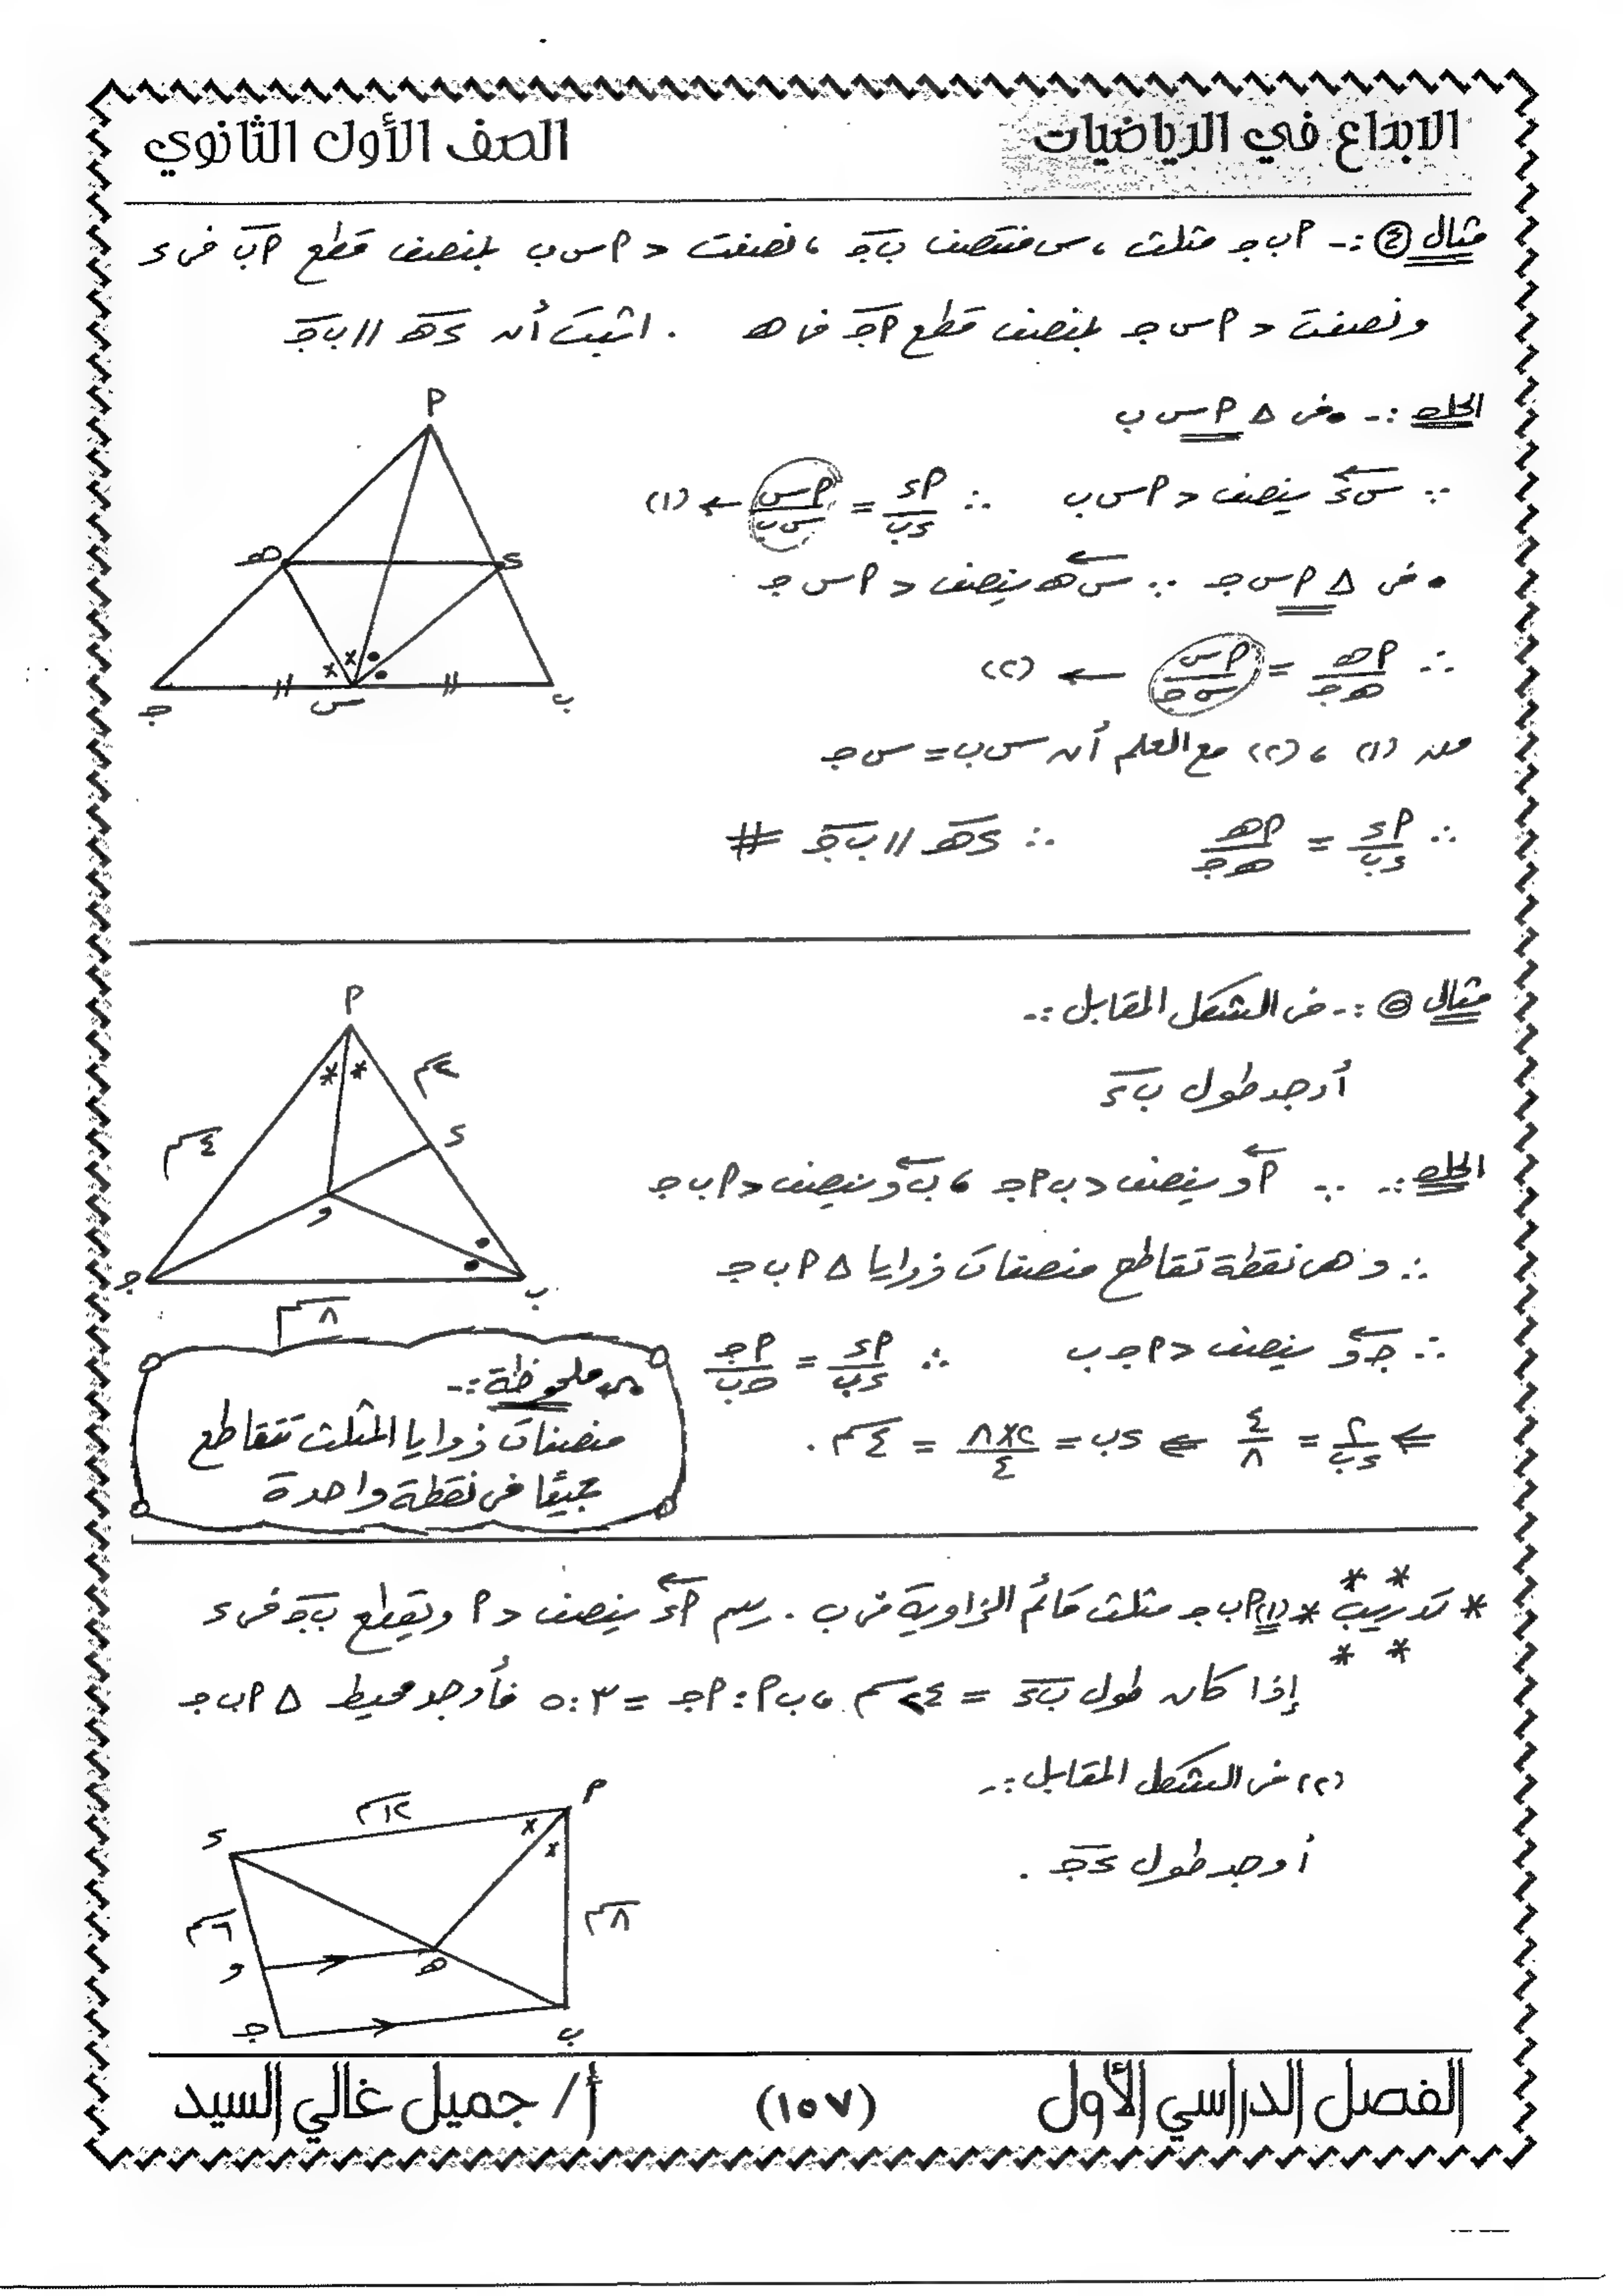 الابداع في الرياضيات
الصف الأول الثانوي
مثال ④ :- أ ب جـ مثلث ، س منتصف ب جـ ، نصفت > أ س ب بمنصف قطع أ ب فى ء
ونصفت > أ س جـ بمنصف قطع أ جـ فى هـ . اثبت أن ء هـ // ب جـ
الحل :- • فى Δ أ س ب
∵ س ء ينصف > أ س ب ∴ أ ء / ء ب = أ س / س ب ← (١)
• فى Δ أ س جـ ∵ س هـ ينصف > أ س جـ
∴ أ هـ / هـ جـ = أ س / س جـ ← (٢)
من (١) ، (٢) مع العلم أن س ب = س جـ
∴ أ ء / ء ب = أ هـ / هـ جـ ∴ ء هـ // ب جـ #
أ
ء
هـ
ب
س
جـ
مثال ⑤ :- فى الشكل المقابل :-
أوجد طول ب ء
الحل :- ∵ أ و ينصف > ب أ جـ ، ب و ينصف > أ ب جـ
∴ و هى نقطة تقاطع منصفات زوايا Δ أ ب جـ
∴ جـ و ينصف > أ جـ ب ∴ أ ء / ء ب = أ جـ / جـ ب
⇐ ٢ / ء ب = ٤ / ٨ ⇐ ء ب = ٢×٨ / ٤ = ٤ سم .
أ
٢ سم
ء
٤ سم
و
جـ
ب
٨ سم
ملحوظة :-
منصفات زوايا المثلث تتقاطع
جميعًا فى نقطة واحدة
* تدريب * (١) أ ب جـ مثلث قائم الزاوية فى ب . رسم أ ء ينصف > أ ويقطع ب جـ فى ء
إذا كان طول ب ء = ٢٤ سم ، ب أ : أ جـ = ٣ : ٥ فأوجد محيط Δ أ ب جـ
(٢) فى الشكل المقابل :-
أوجد طول ء جـ .
أ
١٢ سم
ء
٨ سم
٦ سم
و
هـ
جـ
ب
الفصل الدراسي الأول
(١٥٧)
أ / جميل غالي السيد